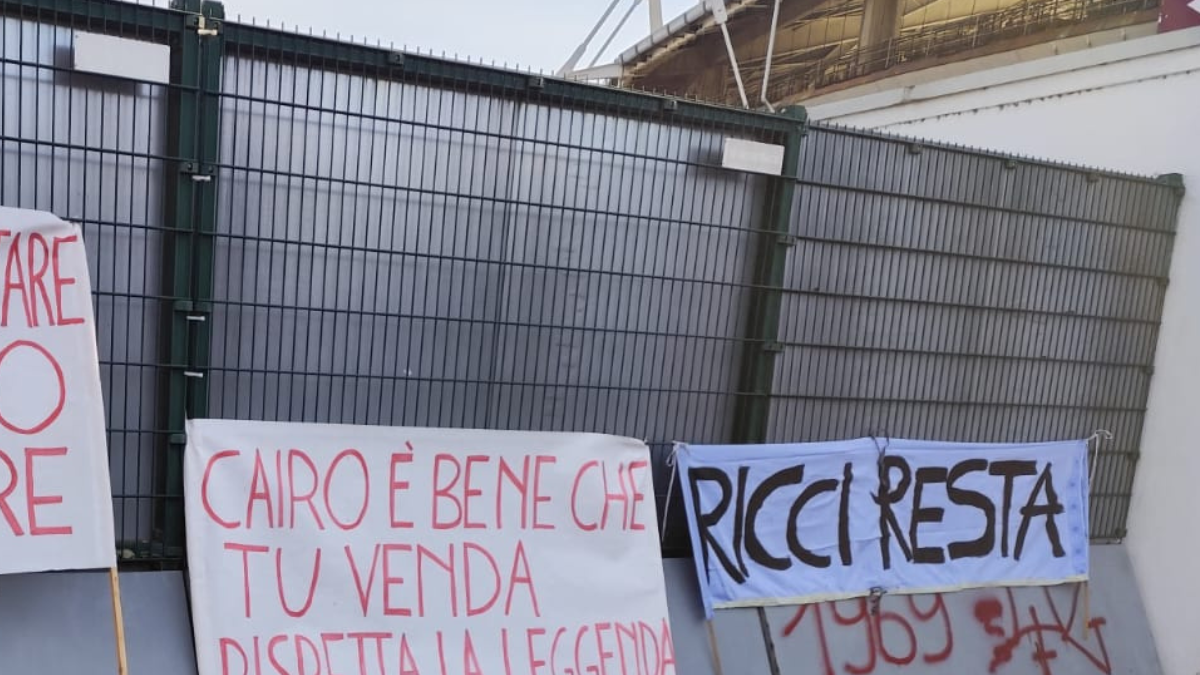 TARE
O
RE
CAIRO È BENE CHE
TU VENDA
RISPETTA LA LEGGENDA
RICCI RESTA
1969